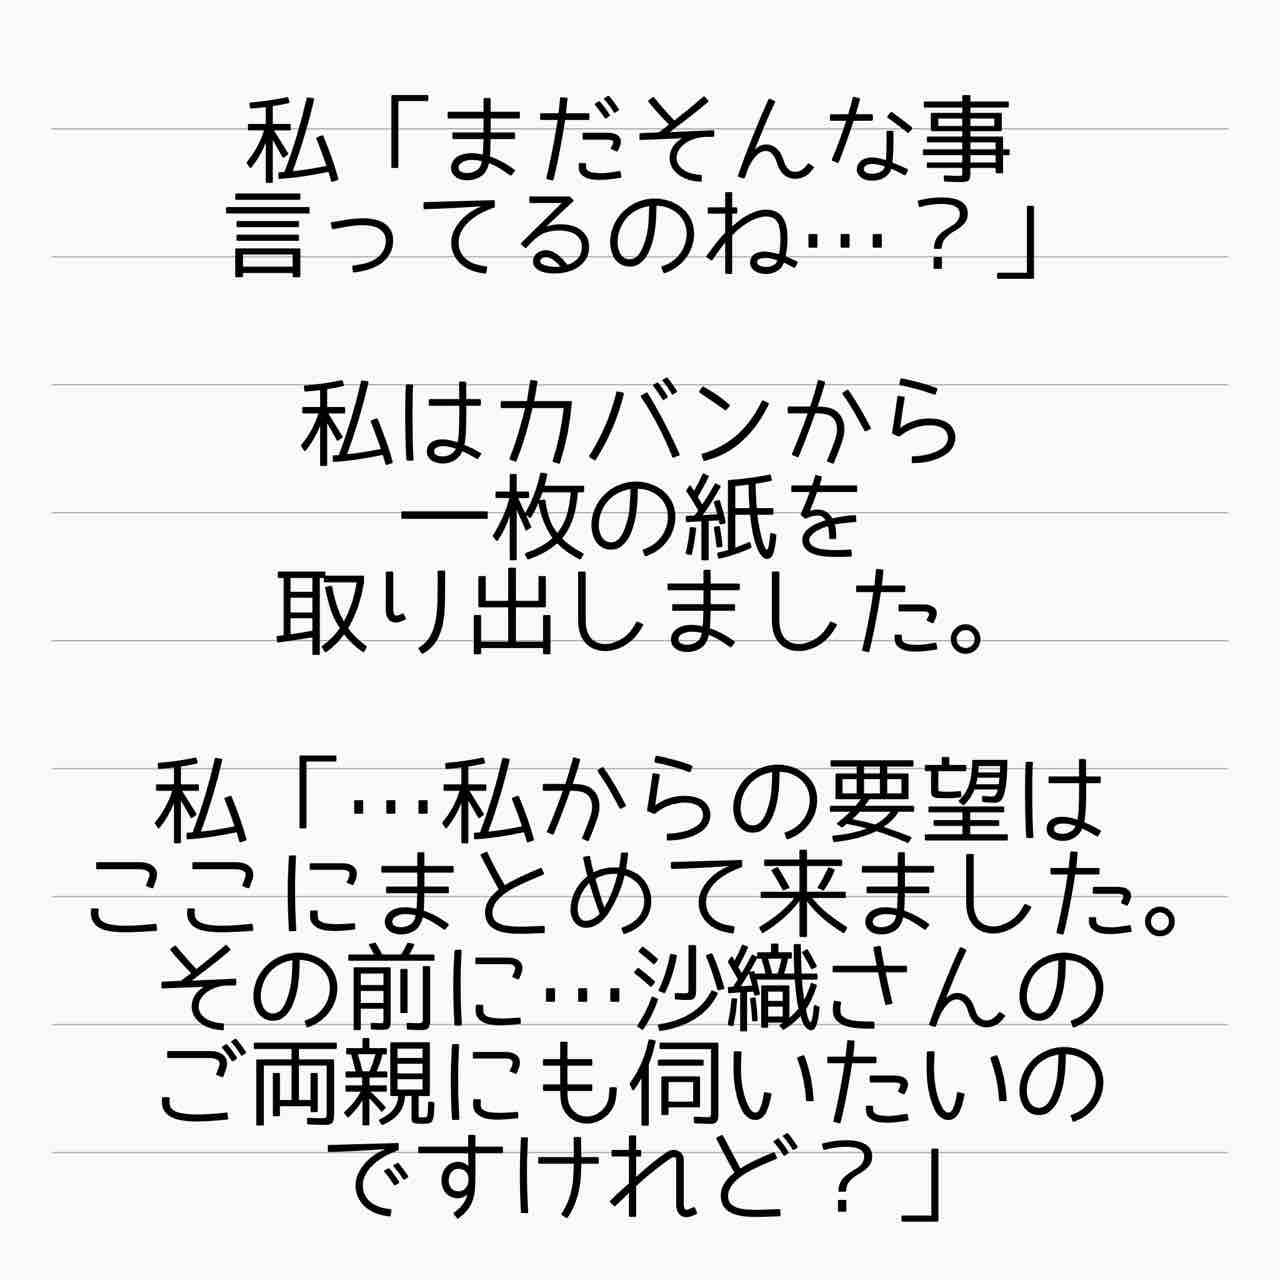 私「まだそんな事
言ってるのね…？」
私はカバンから
一枚の紙を
取り出しました。
私「…私からの要望は
ここにまとめて来ました。
その前に…沙織さんの
ご両親にも伺いたいの
ですけれど？」